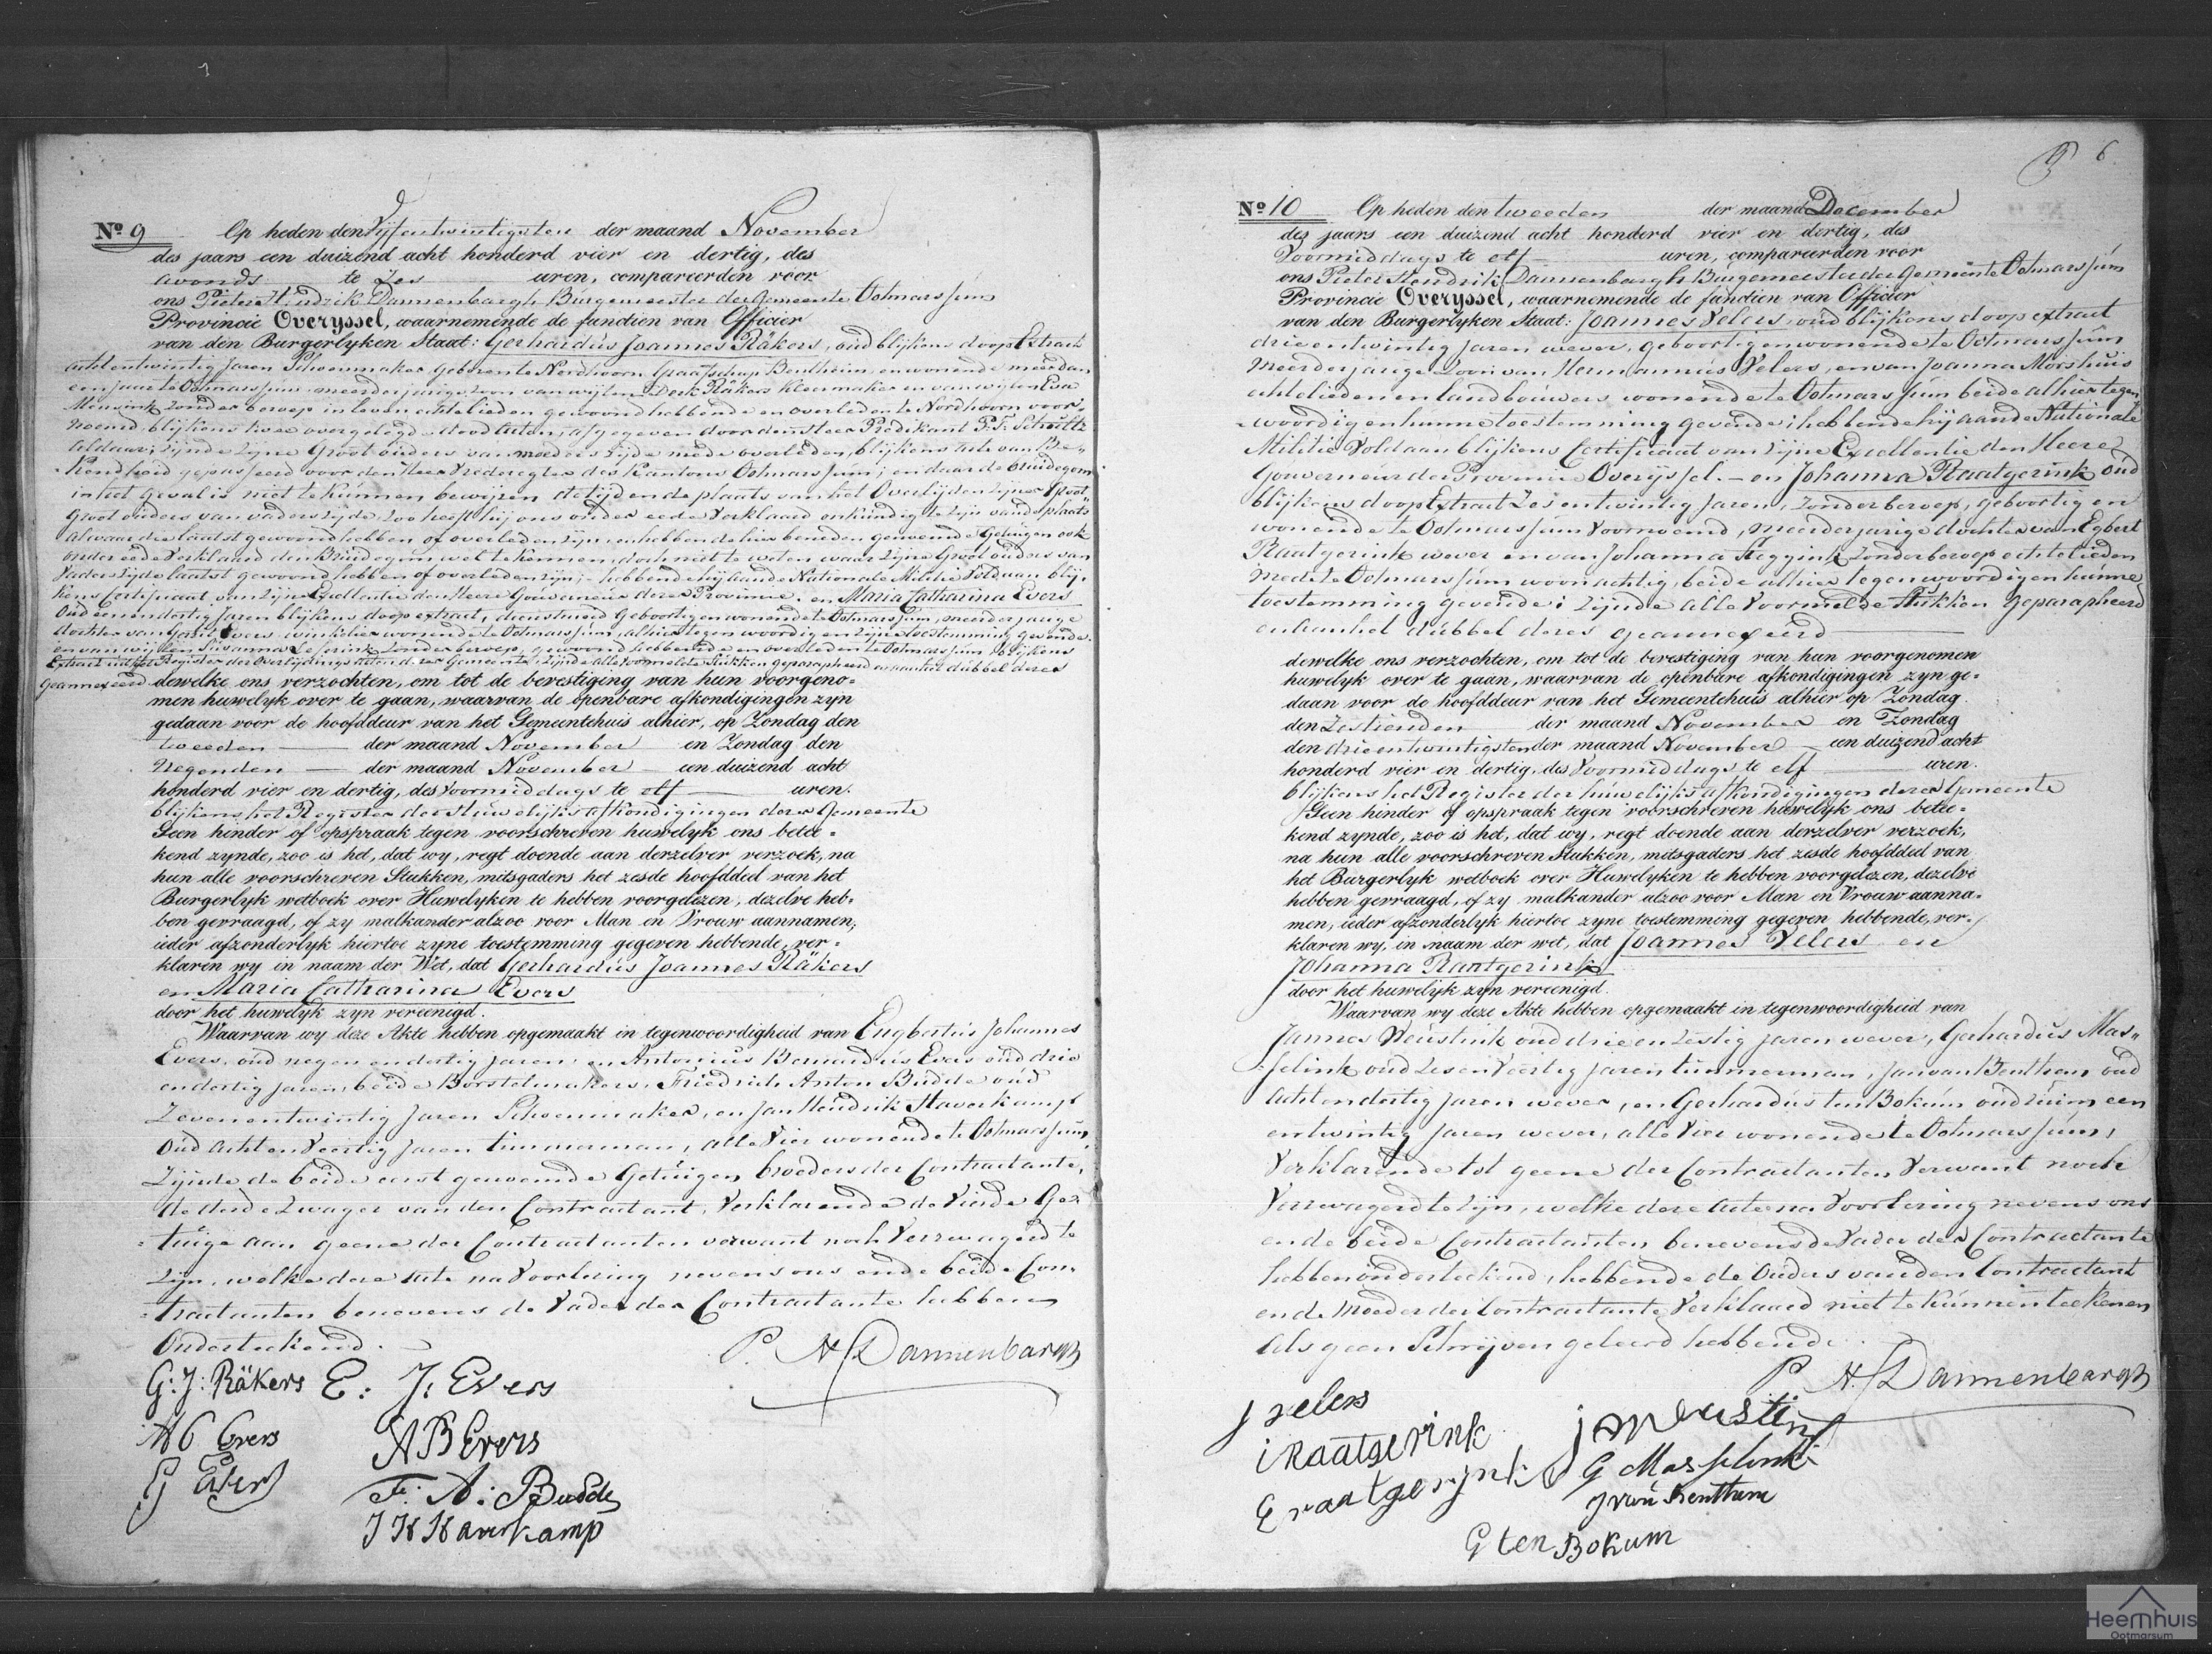 Nº 9 Op heden den Vijfentwintigsten der maand November
des jaars een duizend acht honderd vier en dertig, des
avonds te Zes uren, compareerden voor
ons Pieter Hendrik Dannenbargh Burgemeester der Gemeente Ootmarssum
Provincie Overyssel, waarnemende de functien van Officier
van den Burgerlyken Staat: Gerhardus Joannes Räkers, oud blijkens doop Extract
achtentwintig Jaren Schoenmaker geboren te Nordhoorn Graafschap Bentheim en wonende meer dan
een jaar te Ootmarssum meerderjarige zoon van wijlen Derk Räkers Kleermaker en van wijlen Eva
Mensink zonder beroep in leven echtelieden gewoond hebbende en overleden te Nordhoorn voor-
noemd blijkens twee overgelegde dood acten, afgegeven door den Heer Predikant P. F. Schultz
aldaar; zijnde zijne Groot ouders van moeders zijde mede overleden, blijkens acte van Be-
kendheid gepasseerd voor den Heer Vrederegter des Kantons Ootmarssum; en daar de bruidegom
in het geval is niet te kunnen bewijzen de tijd en de plaats van het Overlijden zijner Groot
Groot ouders van vaders zijde, zoo heeft hij ons onder eede Verklaard onkundig te zijn van de plaats
alwaar die laatst gewoond hebben of overleden zijn, en hebbende hier beneden genoemde Getuigen ook
onder eede Verklaard den Bruidegom wel te kennen, doch niet te weten waar zijne Groot ouders van
Vaders zijde laatst gewoond hebben of overleden zijn; hebbende hij aan de Nationale Militie Voldaan blij-
kens Certificaat van zijne Excellentie den Heere Gouverneur dezer Provincie. en Maria Catharina Evers
Oud eenendertig Jaren blijkens doop extract, dienstmeid Geboortig en wonende te Ootmarssum, meerderjarige
dochter van Gerrit Evers winkelier wonende te Ootmarssum, alhier tegenwoordig en zijne toestemming gevende
en van wijlen Susanna zonder beroep, gewoond hebbende en overleden te Ootmarssum blijkens
Extract uit het Register der Overlijdings acten dezer Gemeente, zijnde alle voormelde Stukken geparapheerd en aan het dubbel dezer
Geannexeerd dewelke ons verzochten, om tot de bevestiging van hun voorgeno=
men huwelyk over te gaan, waarvan de openbare afkondigingen zyn
gedaan voor de hoofddeur van het Gemeentehuis alhier, op Zondag den
tweeden der maand November en Zondag den
Negenden der maand November een duizend acht
honderd vier en dertig, des Voormiddags te elf uren.
blijkens het Register der Huwelijks afkondigingen dezer Gemeente
Geen hinder of opspraak tegen voorschreven huwelyk ons betee=
kend zynde, zoo is het, dat wy, regt doende aan derzelver verzoek, na
hun alle voorschreven Stukken, mitsgaders het zesde hoofddeel van het
Burgerlyk wetboek over Huwelyken te hebben voorgelezen, dezelve heb=
ben gevraagd, of zy malkander alzoo voor Man en Vrouw aannamen,
ieder afzonderlyk hiertoe zyne toestemming gegeven hebbende, ver=
klaren wy in naam der Wet, dat Gerhardus Joannes Räkers
en Maria Catharina Evers
door het huwelyk zyn vereenigd.
Waarvan wy deze Akte hebben opgemaakt in tegenwoordigheid van Engbertus Johannes
Evers, oud negen en dertig jaren en Antonius Bernardus Evers oud drie
en dertig jaren, beide Borstelmakers, Friedrich Anton Budde oud
Zevenentwintig Jaren Schoenmaker, en Jan Hendrik Haverkamp
Oud achtenveertig Jaren timmerman, alle Vier wonende te Ootmarssum,
Zijnde de beide eerst genoemde Getuigen broeders der Contractante,
de derde Zwager van den Contractant, Verklarende de Vierde Ge-
tuige aan geene der Contractanten verwant noch Verzwagerd te
Zijn, welke deze acte na Voorlezing nevens ons en de beide Con-
tractanten benevens de Vader der Contractante hebben
Onderteekend.
P. H. Dannenbargh
G: J: Räkers E. J. Evers
M C Evers A B Evers
G Evers F. A. Budde
J H Haverkamp
6
Nº 10 Op heden den tweeden der maand December
des jaars een duizend acht honderd vier en dertig, des
Voormiddags te elf uren, compareerden voor
ons Pieter Hendrik Dannenbargh Burgemeester der Gemeente Ootmarssum
Provincie Overyssel, waarnemende de functien van Officier
van den Burgerlyken Staat: Joannes Velers, oud blijkens doop extract
drieentwintig Jaren wever, geboortig en wonende te Ootmarssum
Meerderjarige Zoon van Hermannus Velers, en van Joanna Moishuis
echtelieden en landbouwers wonende te Ootmarssum beide alhier tegen-
woordig en hunne toestemming gevende; hebbende hij aan de Nationale
Militie Voldaan blijkens Certificaat van zijne Excellentie den Heere
Gouverneur der Provincie Overijssel. - en Johanna Raatgerink oud
blijkens doop Extract Zes entwintig Jaren, Zonder beroep, geboortig en
wonende te Ootmarssum Voornoemd, Meerderjarige dochter van Egbert
Raatgerink wever en van Johanna Heggink Zonder beroep echtelieden
mede te Ootmarssum woonachtig, beide alhier tegenwoordig en hunne
toestemming gevende; zijnde alle Voormelde Stukken Geparapheerd
en aan het dubbel dezer geannexeerd
dewelke ons verzochten, om tot de bevestiging van hun voorgenomen
huwelyk over te gaan, waarvan de openbare afkondigingen zyn ge=
daan voor de hoofddeur van het Gemeentehuis alhier op Zondag
den Zestienden der maand November en Zondag
den drieentwintigsten der maand November een duizend acht
honderd vier en dertig, des Voormiddags te elf uren.
blijkens het Register der huwelijks afkondigingen dezer Gemeente
Geen hinder of opspraak tegen voorschreven huwelyk ons betee=
kend zynde, zoo is het, dat wy, regt doende aan derzelver verzoek,
na hun alle voorschreven Stukken, mitsgaders het zesde hoofddeel van
het Burgerlyk wetboek over Huwelyken te hebben voorgelezen, dezelve
hebben gevraagd, of zy malkander alzoo voor Man en Vrouw aanna=
men, ieder afzonderlyk hiertoe zyne toestemming gegeven hebbende, ver=
klaren wy, in naam der wet, dat Joannes Velers en
Johanna Raatgerink
door het huwelyk zyn vereenigd.
Waarvan wy deze Akte hebben opgemaakt in tegenwoordigheid van
Jannes Neustink oud drie en Zestig jaren wever, Gerhardus Mas-
selink oud Zes en Veertig jaren timmerman, Jan van Benthem oud
Acht en dertig jaren wever, en Gerhardus ten Bokum oud ruim een
entwintig Jaren wever, alle Vier wonende te Ootmarssum,
Verklarende tot geene der Contractanten Verwant noch
Verzwagerd te zijn, welke deze acte na Voorlezing nevens ons
en de beide Contractanten, benevens de Vader der Contractante
hebben onderteekend, hebbende de Ouders van den Contractant
en de Moeder der Contractante Verklaard niet te kunnen teekenen
Als geen Schrijven geleerd hebbende.
P. H. Dannenbargh
J velers
i Raatgerink
E raatgerijnk
G Masselink
J van Benthem
G ten Bokum
Heemhuis
Ootmarsum